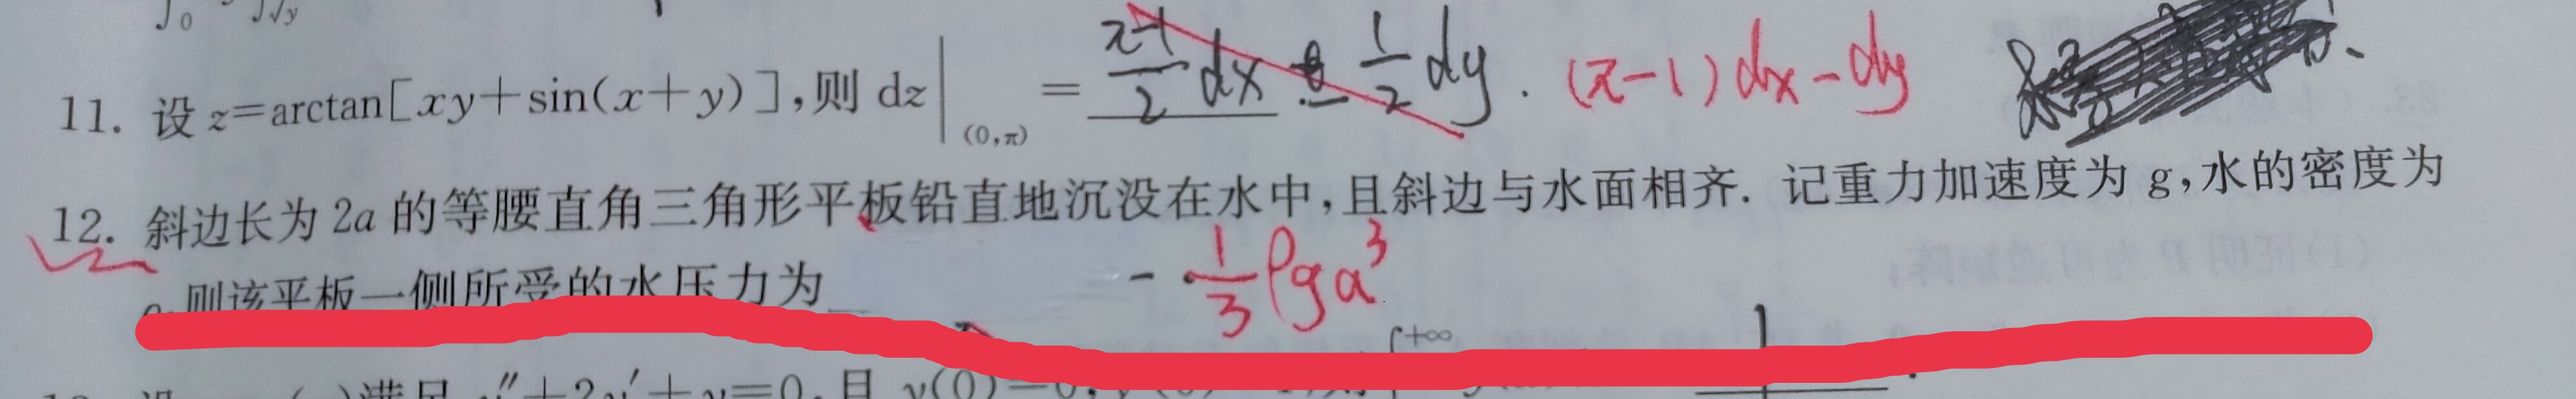 11. 设 z=arctan[xy+sin(x+y)],则 dz|(0,π) = π-1/2 dx 1/2 dy. (π-1)dx-dy
12. 斜边长为 2a 的等腰直角三角形平板铅直地沉没在水中,且斜边与水面相齐. 记重力加速度为 g,水的密度为
ρ,则该平板一侧所受的水压力为 1/3 ρga³
满足 y″+2y′+y=0,且 y(0)=0, +∞